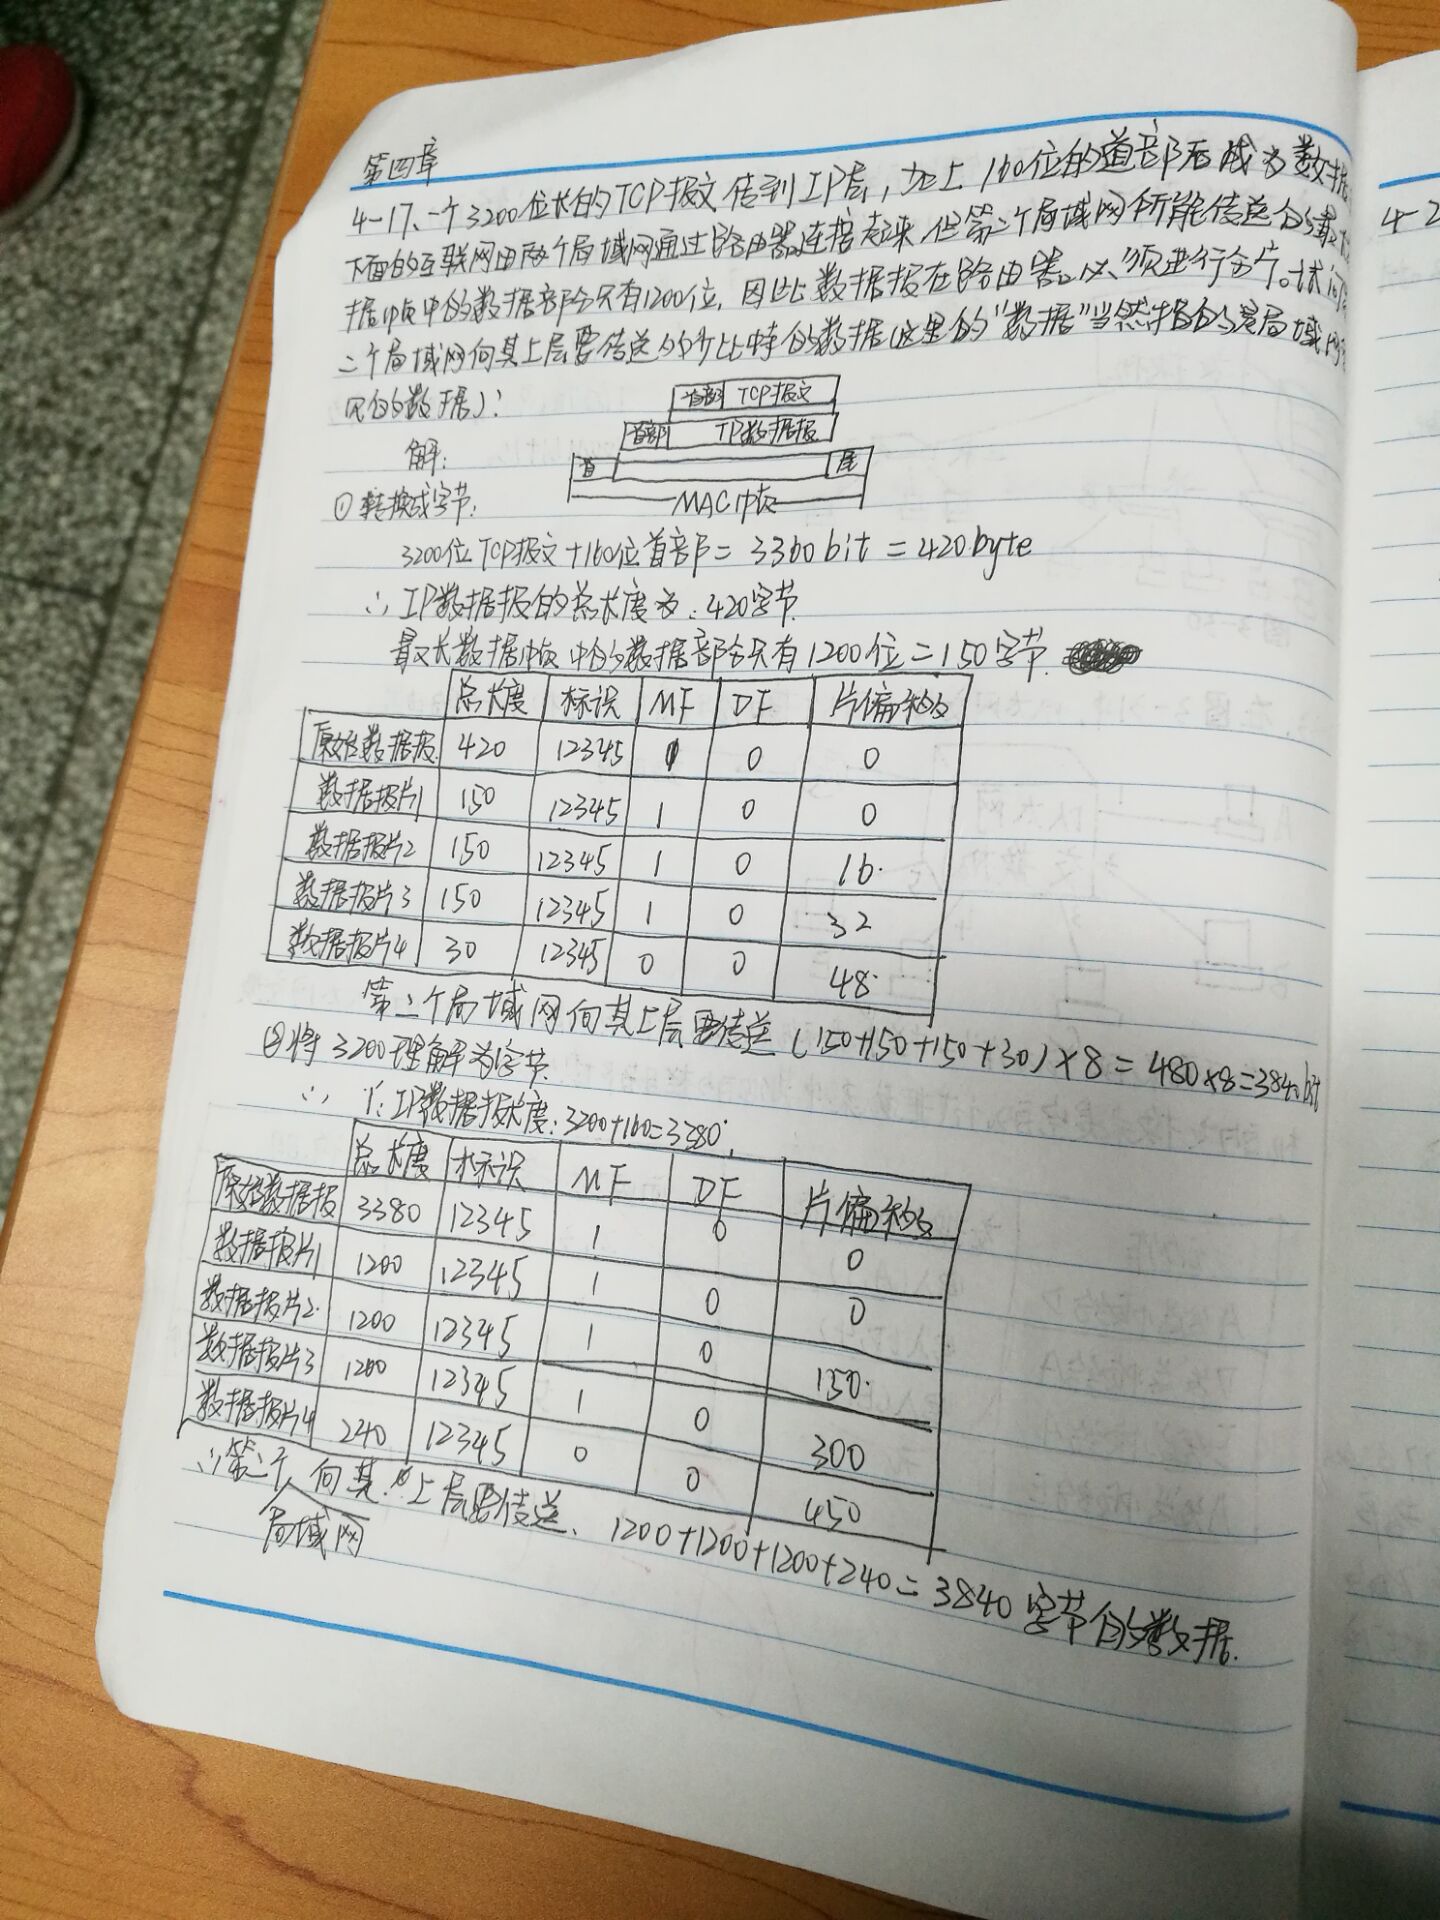 第四章
4-17、一个3200位长的TCP报文传到IP层，加上160位的首部后成为数据
下面的互联网由两个局域网通过路由器连接起来，但第二个局域网所能传送的最长
据帧中的数据部分只有1200位，因此数据报在路由器必须进行分片。试问
二个局域网向其上层要传送多少比特的数据（这里的“数据”当然指的是局域网
见的数据）？
首部 TCP报文
首部 IP数据报
解：
首 尾
MAC帧
① 转换成字节：
3200位TCP报文+160位首部=3360bit=420byte
∴ IP数据报的总长度为：420字节.
最长数据帧中的数据部分只有1200位=150字节.
总长度 标识 MF DF 片偏移
原始数据报 420 12345 0 0
数据报片1 150 12345 1 0 0
数据报片2 150 12345 1 0 16.
数据报片3 150 12345 1 0 32
数据报片4 30 12345 0 0 48.
第二个局域网向其上层要传送（150+150+150+30）×8=480×8=3840bit
②将3200理解为字节.
∴ IP数据报长度：3200+160=3380;
总长度 标识 MF DF 片偏移
原始数据报 3380 12345 1 0 0
数据报片1 1200 12345 1 0 0
数据报片2. 1200 12345 1 0 150.
数据报片3 1200 12345 1 0 300
数据报片4 240 12345 0 0 450
∴第二个局域网向其上层要传送、1200+1200+1200+240=3840字节的数据.
4-2